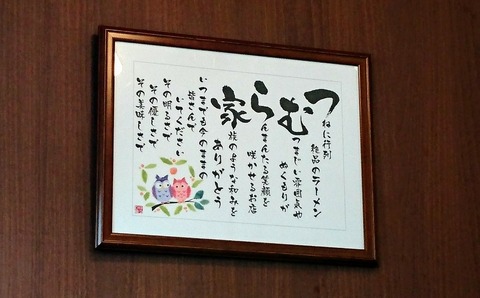 つねに行列
絶品のラーメン
むつまじい雰囲気や
ぬくもりが
らんまんたる笑顔を
咲かせるお店
家族のような和みを
ありがとう
いつまでも今のままの
皆さんで
いてください
その明るさで
その優しさで
その美味しさで